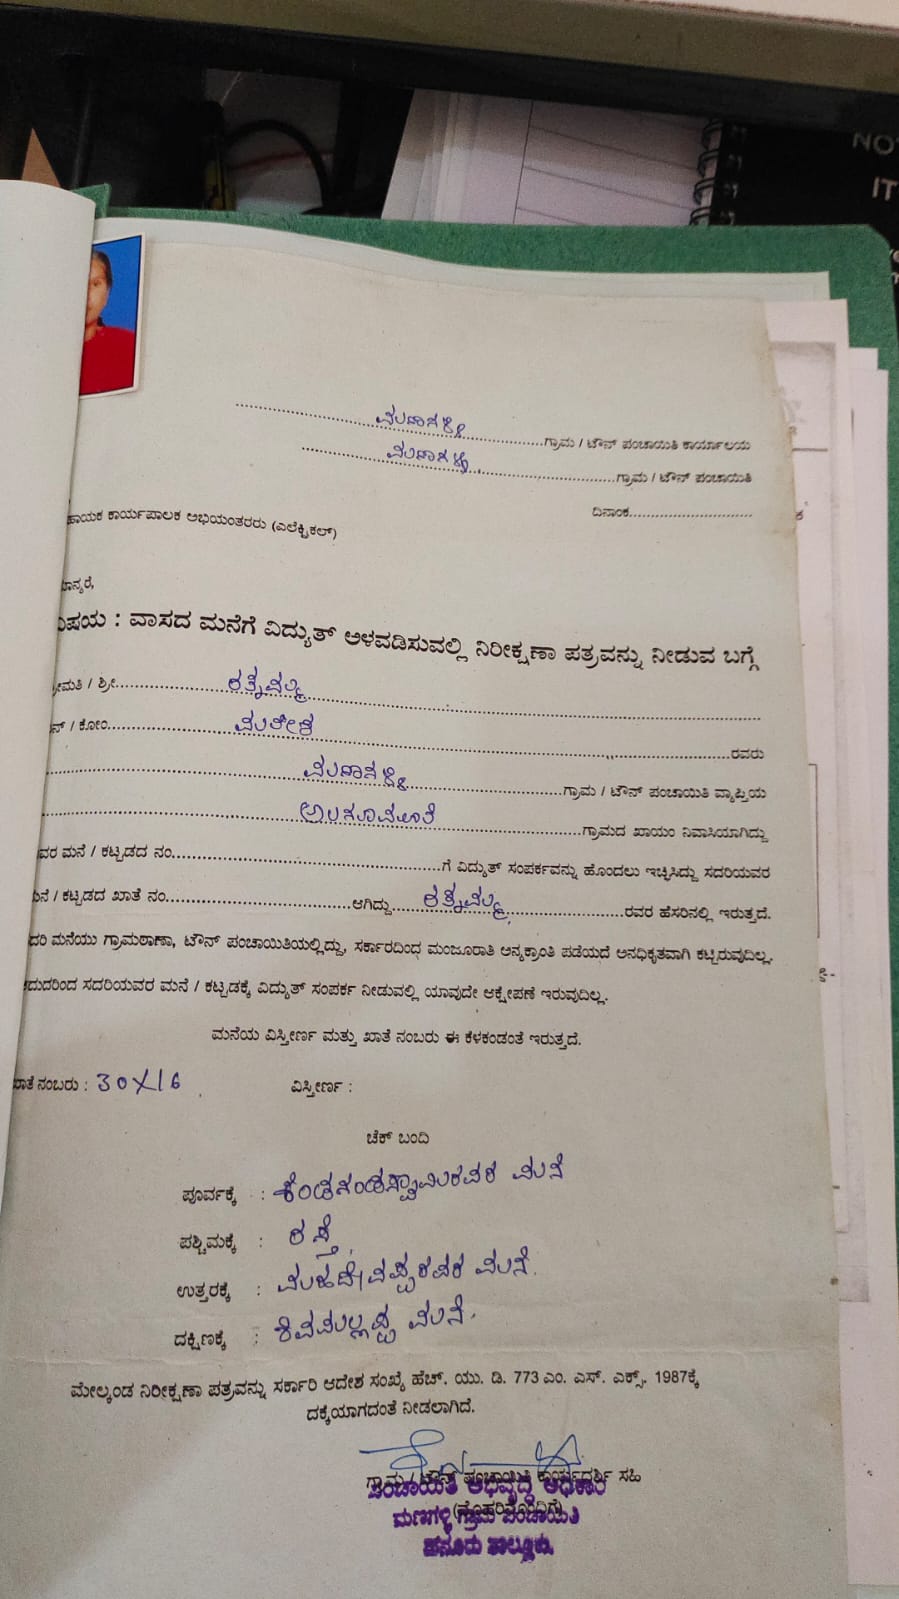 NO
IT
ಗ್ರಾಮ / ಟೌನ್ ಪಂಚಾಯಿತಿ ಕಾರ್ಯಾಲಯ
ಗ್ರಾಮ / ಟೌನ್ ಪಂಚಾಯಿತಿ
ದಿನಾಂಕ
ಹಾಯಕ ಕಾರ್ಯಪಾಲಕ ಅಭಿಯಂತರರು (ಎಲೆಕ್ಟ್ರಿಕಲ್)
ಮಾನ್ಯರೆ,
ವಿಷಯ : ವಾಸದ ಮನೆಗೆ ವಿದ್ಯುತ್ ಅಳವಡಿಸುವಲ್ಲಿ ನಿರೀಕ್ಷಣಾ ಪತ್ರವನ್ನು ನೀಡುವ ಬಗ್ಗೆ
ೀಮತಿ / ಶ್ರೀ ರತ್ನಮ್ಮ
ನ್ / ಕೋಂ ಮಹೇಶ ರವರು
ಗ್ರಾಮ / ಟೌನ್ ಪಂಚಾಯಿತಿ ವ್ಯಾಪ್ತಿಯ
ಗ್ರಾಮದ ಖಾಯಂ ನಿವಾಸಿಯಾಗಿದ್ದು
ವರ ಮನೆ / ಕಟ್ಟಡದ ನಂ. ಗೆ ವಿದ್ಯುತ್ ಸಂಪರ್ಕವನ್ನು ಹೊಂದಲು ಇಚ್ಛಿಸಿದ್ದು ಸದರಿಯವರ
ನೆ / ಕಟ್ಟಡದ ಖಾತೆ ನಂ. ಆಗಿದ್ದು ರತ್ನಮ್ಮ ರವರ ಹೆಸರಿನಲ್ಲಿ ಇರುತ್ತದೆ.
ದರಿ ಮನೆಯು ಗ್ರಾಮಠಾಣಾ, ಟೌನ್ ಪಂಚಾಯಿತಿಯಲ್ಲಿದ್ದು, ಸರ್ಕಾರದಿಂದ ಮಂಜೂರಾತಿ ಅನ್ಯಕ್ರಾಂತಿ ಪಡೆಯದೆ ಅನಧಿಕೃತವಾಗಿ ಕಟ್ಟಿರುವುದಿಲ್ಲ.
ದುದರಿಂದ ಸದರಿಯವರ ಮನೆ / ಕಟ್ಟಡಕ್ಕೆ ವಿದ್ಯುತ್ ಸಂಪರ್ಕ ನೀಡುವಲ್ಲಿ ಯಾವುದೇ ಆಕ್ಷೇಪಣೆ ಇರುವುದಿಲ್ಲ.
ಮನೆಯ ವಿಸ್ತೀರ್ಣ ಮತ್ತು ಖಾತೆ ನಂಬರು ಈ ಕೆಳಕಂಡಂತೆ ಇರುತ್ತದೆ.
ಖಾತೆ ನಂಬರು : 30X16 ವಿಸ್ತೀರ್ಣ :
ಚೆಕ್ ಬಂದಿ
ಪೂರ್ವಕ್ಕೆ : ಮನೆ
ಪಶ್ಚಿಮಕ್ಕೆ : ರಸ್ತೆ
ಉತ್ತರಕ್ಕೆ : ಮನೆ.
ದಕ್ಷಿಣಕ್ಕೆ : ಶಿವಮಲ್ಲಪ್ಪ ಮನೆ.
ಮೇಲ್ಕಂಡ ನಿರೀಕ್ಷಣಾ ಪತ್ರವನ್ನು ಸರ್ಕಾರಿ ಆದೇಶ ಸಂಖ್ಯೆ ಹೆಚ್. ಯು. ಡಿ. 773 ಎಂ. ಎಸ್. ಎಕ್ಸ್. 1987ಕ್ಕೆ
ದಕ್ಕೆಯಾಗದಂತೆ ನೀಡಲಾಗಿದೆ.
ಗ್ರಾಮ / ಟೌನ್ ಪಂಚಾಯಿತಿ ಕಾರ್ಯದರ್ಶಿ ಸಹಿ
ಪಂಚಾಯಿತಿ ಅಭಿವೃದ್ಧಿ ಅಧಿಕಾರಿ
(ಮೊಹರಿನೊಂದಿಗೆ)
ಮಣಗಳ್ಳಿ ಗ್ರಾಮ ಪಂಚಾಯಿತಿ
ಹನೂರು ತಾಲ್ಲೂಕು.